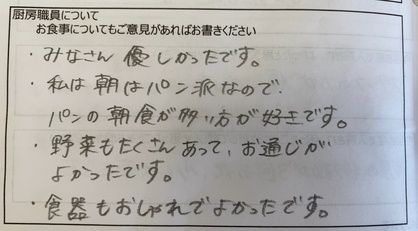 厨房職員について
お食事についてもご意見があればお書きください
・みなさん優しかったです。
・私は朝はパン派なので、
パンの朝食が多い方が好きです。
・野菜もたくさんあって、お通じが
よかったです。
・食器もおしゃれでよかったです。